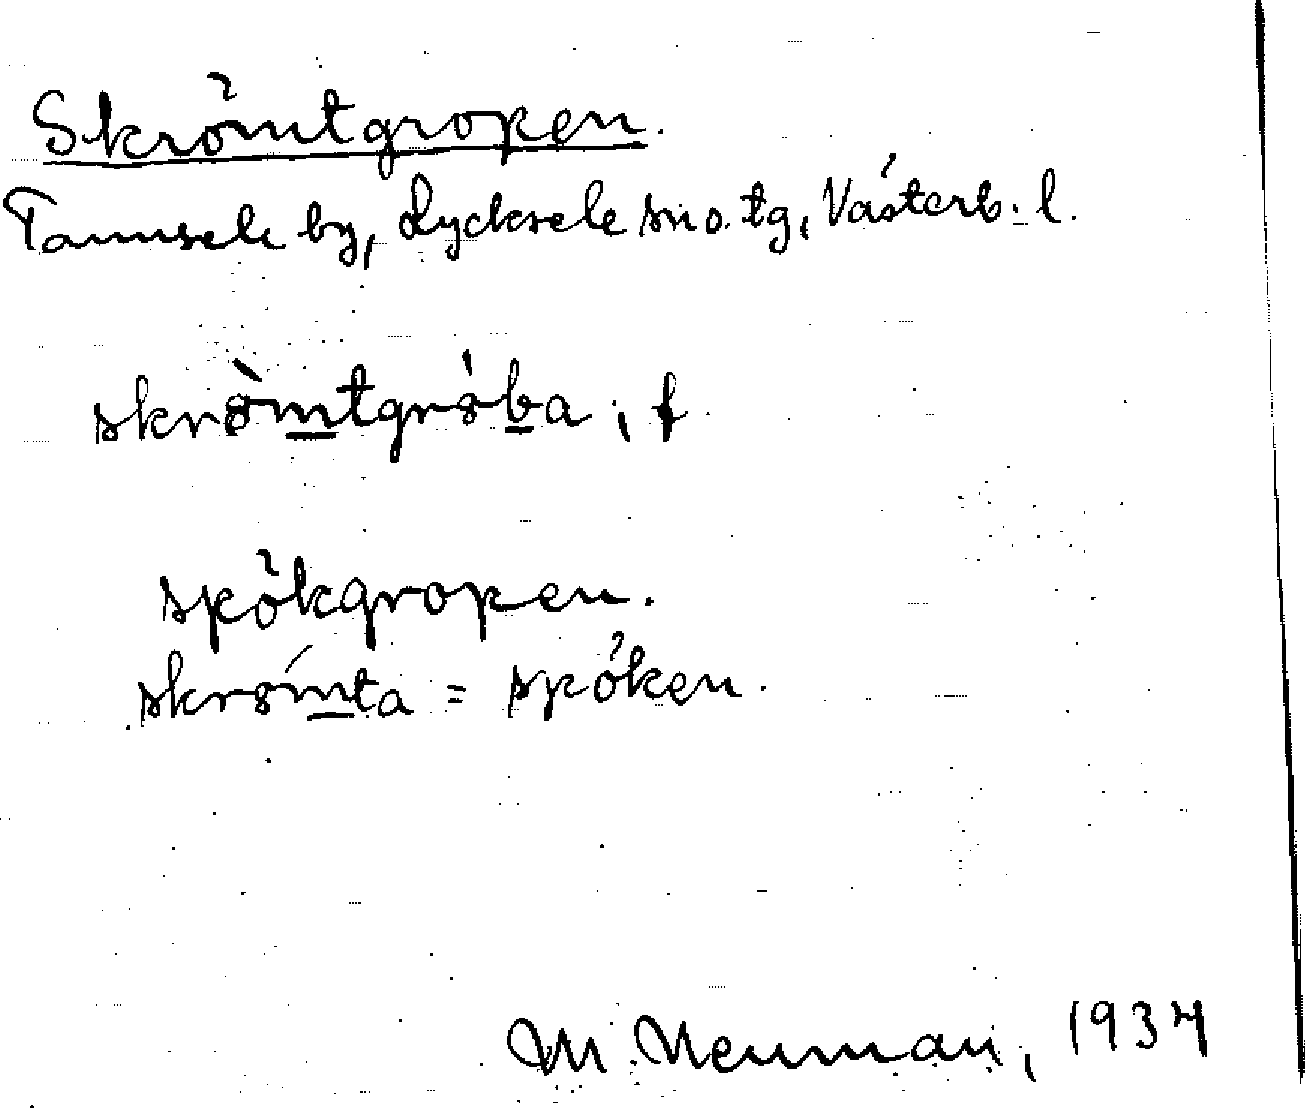 Skrömtgropen.
Tannsele by, Lycksele sn o. tg, Västerb. l.
skrömtgròba, f
spökgropen.
skrömta = spöken.
M. Neuman, 1934